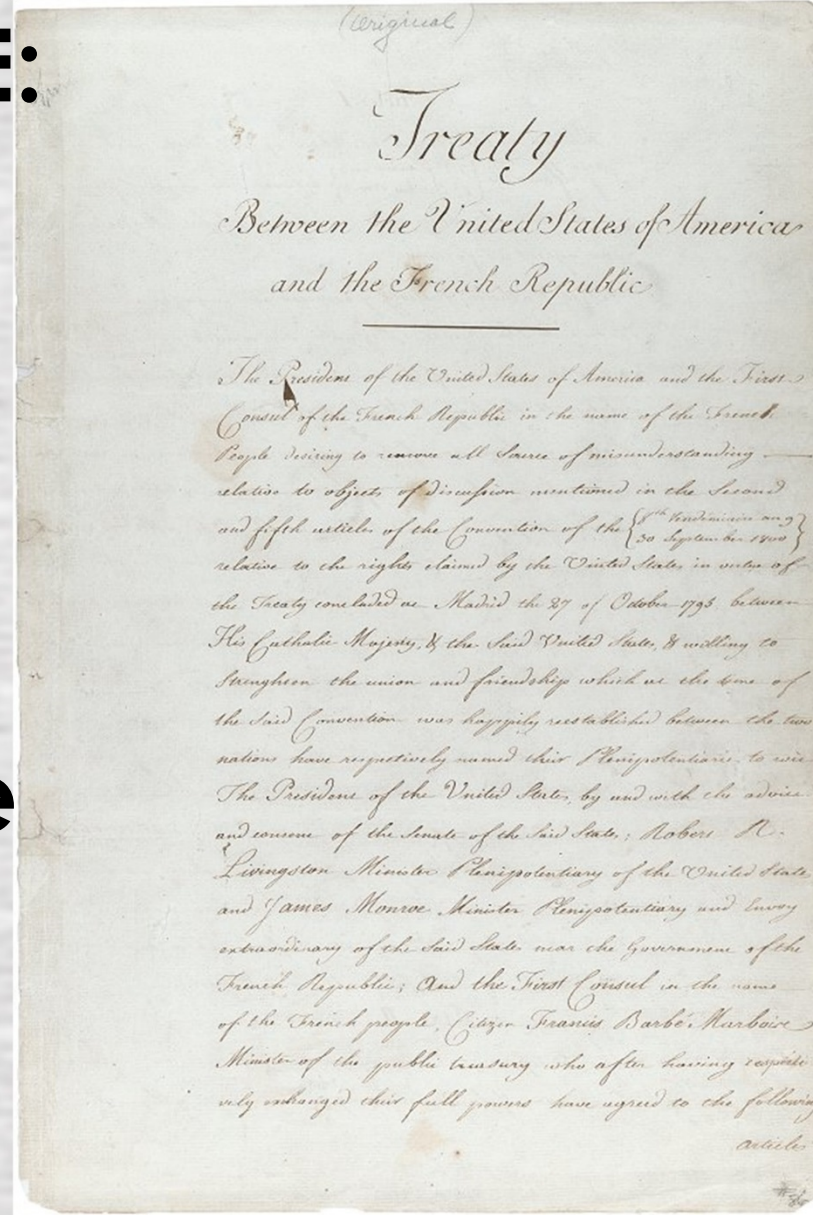 (Original)
Treaty
Between the United States of America
and the French Republic
The President of the United States of America and the First
Consul of the French Republic in the name of the French
People desiring to remove all Source of misunderstanding
relative to objects of discussion mentioned in the Second
and fifth articles of the Convention of the {8th Vendémiaire an 9
30 September 1800}
relative to the rights claimed by the United States in virtue of
the Treaty concluded at Madrid the 27 of October 1795, between
His Catholic Majesty, & the Said United States, & willing to
Strengthen the union and friendship which at the time of
the Said Convention was happily reestablished between the two
nations have respectively named their Plenipotentiaries to wit
The President of the United States, by and with the advice
and consent of the Senate of the Said States; Robert R.
Livingston Minister Plenipotentiary of the United State
and James Monroe Minister Plenipotentiary and Envoy
extraordinary of the Said States near the Government of the
French Republic; And the First Consul in the name
of the French people, Citizen Francis Barbé Marbois
Minister of the public treasury who after having respecti
vely exchanged their full powers have agreed to the following
articles